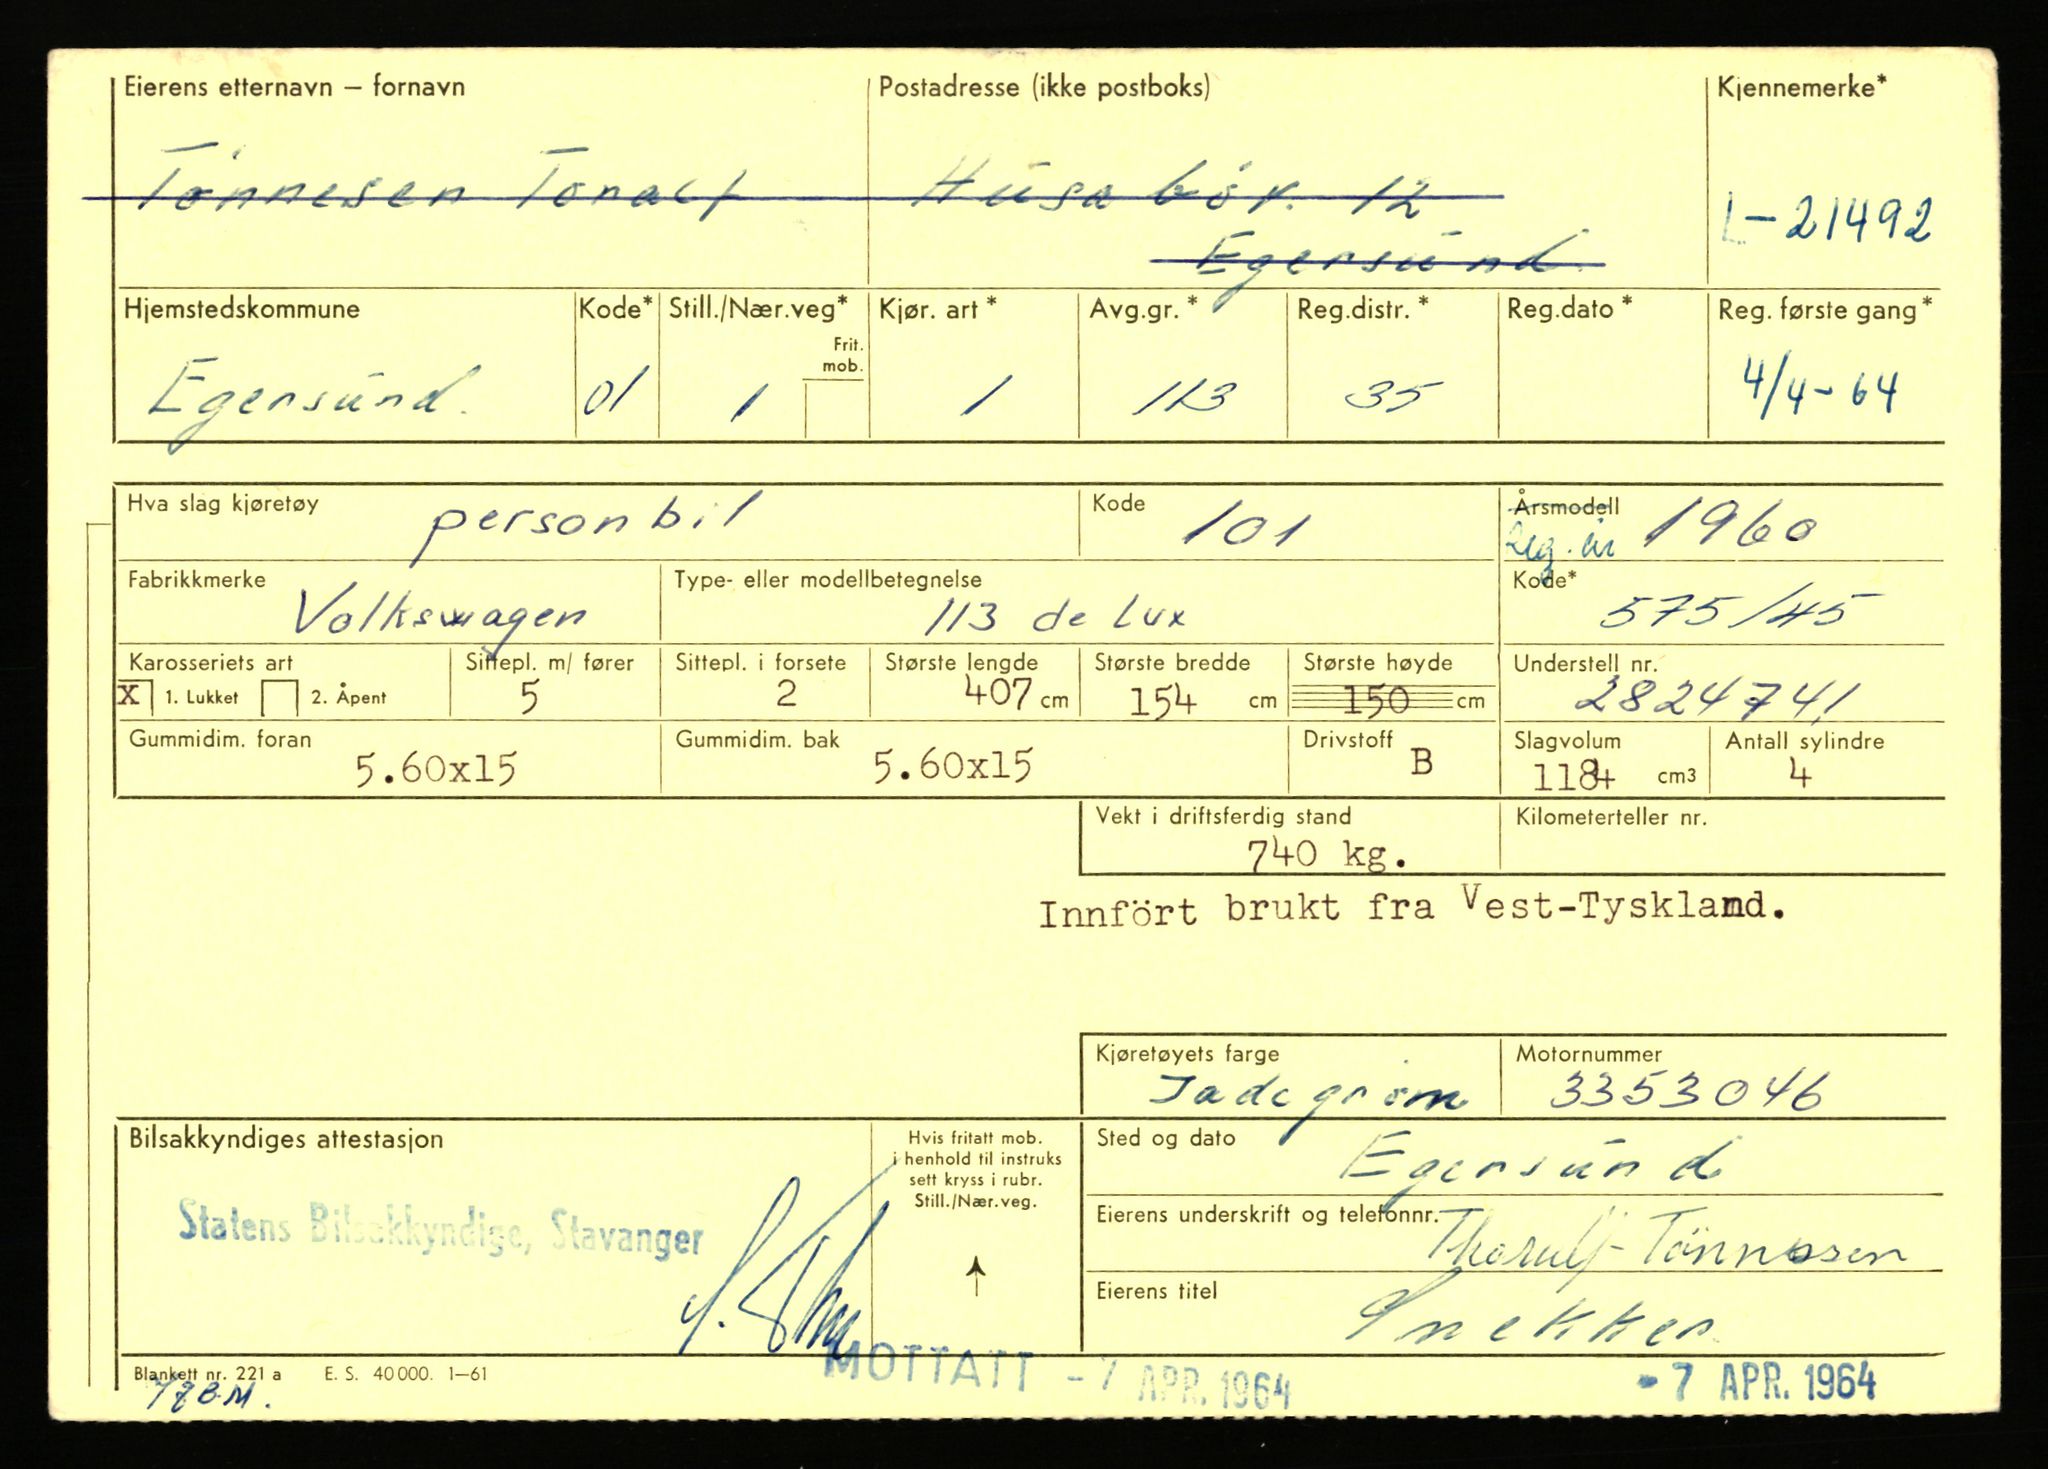 Eierens etternavn – fornavn Postadresse (ikke postboks) Kjennemerke*
Tønnesen Toralf Husabör. 12 L-21492
Egersund
Hjemstedskommune Kode* Still./Nær.veg* Kjør. art* Avg.gr.* Reg.distr.* Reg.dato* Reg. første gang*
Frit. mob.
Egersund. 01 1 1 113 35 4/4-64
Hva slag kjøretøy personbil Kode 101 Årsmodell Reg. år 1960
Fabrikkmerke Type- eller modellbetegnelse Kode*
Volkswagen 113 de Lux 575/45
Karosseriets art Sittepl. m/ fører Sittepl. i forsete Største lengde Største bredde Største høyde Understell nr.
X 1. Lukket 2. Åpent 5 2 407 cm 154 cm 150 cm 2824741
Gummidim. foran Gummidim. bak Drivstoff Slagvolum Antall sylindre
5.60x15 5.60x15 B 1184 cm3 4
Vekt i driftsferdig stand Kilometerteller nr.
740 kg.
Innfört brukt fra Vest-Tyskland.
Kjøretøyets farge Motornummer
Jadegrøn 3353046
Bilsakkyndiges attestasjon Hvis fritatt mob. i henhold til instruks sett kryss i rubr. Still./Nær.veg. Sted og dato
Egersund
Statens Bilsakkyndige, Stavanger
Eierens underskrift og telefonnr. Thorulf Tönnessen
Eierens titel Snekker
Blankett nr. 221 a E. S. 40 000. 1–61
MOTTATT - 7 APR. 1964 - 7 APR. 1964